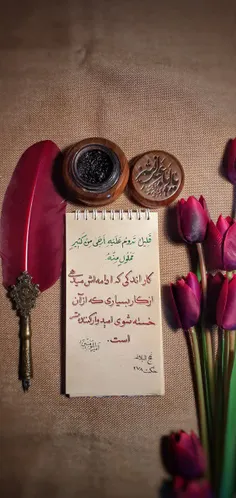 قَلیلٌ تَدومُ عَلَیهِ اَرجیٰ مِن کَثیرٍ
مَملولٍ مِنهُ
کار اندکی که ادامه‌اش میدهی
از کار بسیاری که از آن
خسته شوی امیدوارکننده‌تر
است.
نهج البلاغه
حکمت ۲۷۸